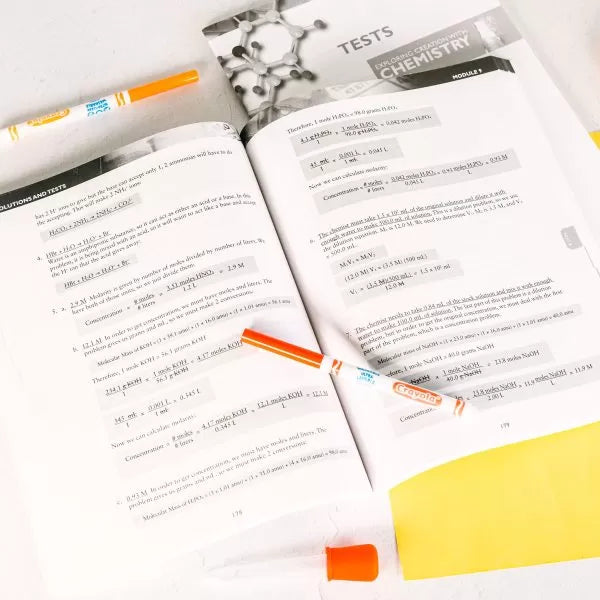 TESTS
EXPLORING CREATION WITH
CHEMISTRY
MODULE 9
SOLUTIONS AND TESTS
has 2 H⁺ ions to give but the base can accept only 1, 2 ammonias will have to do
the accepting. This will make 2 NH₄⁺ ions:
H₂CO₃ + 2NH₃ → 2NH₄⁺ + CO₃²⁻
4. HBr + H₂O → H₃O⁺ + Br⁻
Water is an amphiprotic substance, so it can act as either an acid or a base. In this
problem, it is being mixed with an acid, so it will want to act like a base and accept
the H⁺ ion that the acid gives away:
HBr + H₂O → H₃O⁺ + Br⁻
5. a. 2.9 M Molarity is given by number of moles divided by number of liters. We
have both of those units, so we just divide them:
Concentration = # moles / # liters = 3.51 moles HNO₃ / 1.2 L = 2.9 M
b. 12.1 M In order to get concentration, we must have moles and liters. The
problem gives us grams and mL, so we must make 2 conversions:
Molecular Mass of KOH = (1 × 39.1 amu) + (1 × 16.0 amu) + (1 × 1.01 amu) = 56.1 amu
Therefore, 1 mole KOH = 56.1 grams KOH
234.1 g KOH / 1 × 1 mole KOH / 56.1 g KOH = 4.17 moles KOH
345 mL / 1 × 0.001 L / 1 mL = 0.345 L
Now we can calculate molarity:
Concentration = # moles / # liters = 4.17 moles KOH / 0.345 L = 12.1 moles KOH / L = 12.1 M
c. 0.93 M In order to get concentration, we must have moles and liters. The
problem gives us grams and mL, so we must make 2 conversions:
Molecular Mass of H₃PO₄ = (3 × 1.01 amu) + (1 × 31.0 amu) + (4 × 16.0 amu) = 98.0 amu
178
Therefore, 1 mole H₃PO₄ = 98.0 grams H₃PO₄
4.1 g H₃PO₄ / 1 × 1 mole H₃PO₄ / 98.0 g H₃PO₄ = 0.042 moles H₃PO₄
45 mL / 1 × 0.001 L / 1 mL = 0.045 L
Now we can calculate molarity:
Concentration = # moles / # liters = 0.042 moles H₃PO₄ / 0.045 L = 0.93 moles H₃PO₄ / L = 0.93 M
6. The chemist must take 1.5 × 10² mL of the original solution and dilute it with
enough water to make 500.0 mL of solution. This is a dilution problem, so we use
the dilution equation. M₁ is 12.0 M. We need to determine V₁. M₂ is 3.5 M, and V₂
is 500.0 mL.
M₁V₁ = M₂V₂
(12.0 M)(V₁) = (3.5 M)(500 mL)
V₁ = (3.5 M)(500 mL) / 12.0 M = 1.5 × 10² mL
7. The chemist needs to take 0.84 mL of the stock solution and mix it with enough
water to make 100.0 mL of solution. The last part of this problem is a dilution
problem, but in order to get the original concentration, we must deal with the first
part of the problem, which is a concentration problem.
Molecular mass of NaOH = (1 × 23.0 amu) + (1 × 16.0 amu) + (1 × 1.01 amu) = 40.0 amu
Therefore, 1 mole NaOH = 40.0 grams NaOH
NaOH × 1 mole NaOH / 40.0 g NaOH = 23.8 moles NaOH
Concentration = 23.8 moles NaOH / 2.00 L = 11.9 moles NaOH / L = 11.9 M
179
Crayola
Crayola